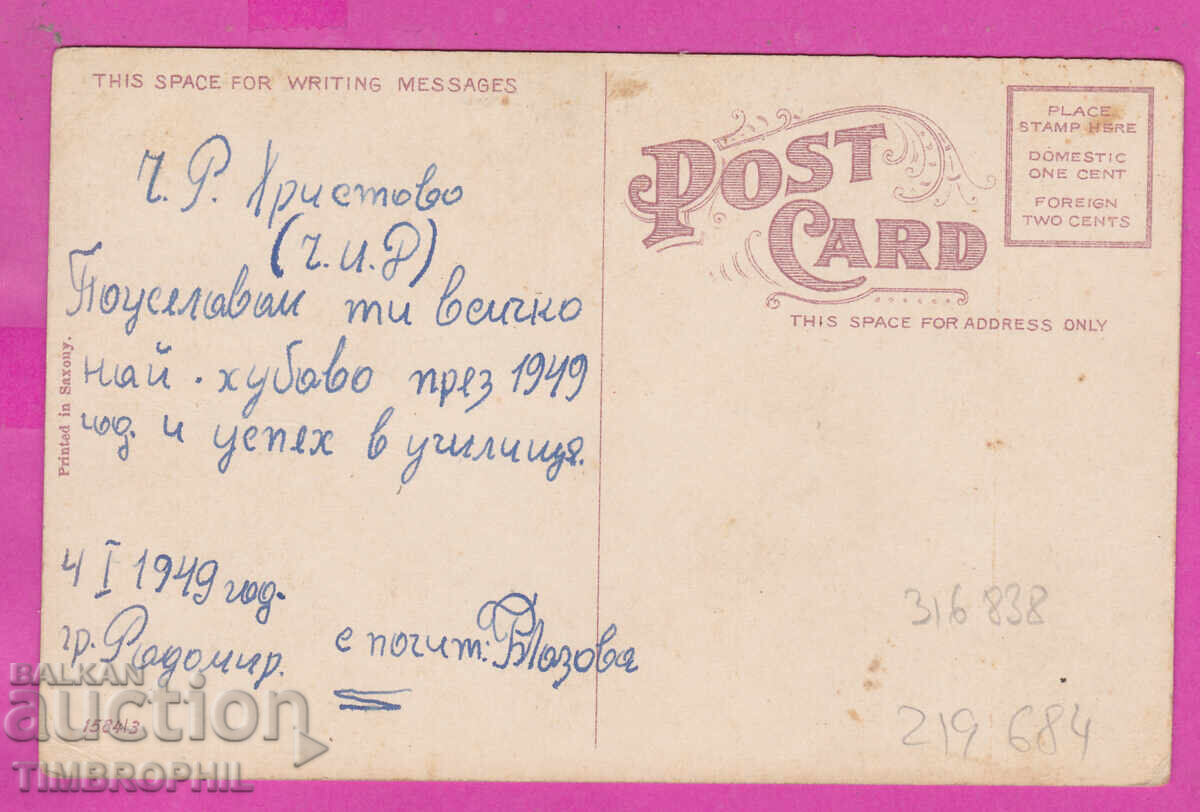 THIS SPACE FOR WRITING MESSAGES
Ч. Р. Христово
(Ч. И. Р)
Пожелавам ти всичко
най-хубаво през 1949
год. и успех в училище.
4 I 1949 год.
гр. Радомир.
с почит:
Printed in Saxony.
15841/3
POST
CARD
THIS SPACE FOR ADDRESS ONLY
PLACE
STAMP HERE
DOMESTIC
ONE CENT
FOREIGN
TWO CENTS
316 838
219 684
BALKAN
auction
TIMBROPHIL